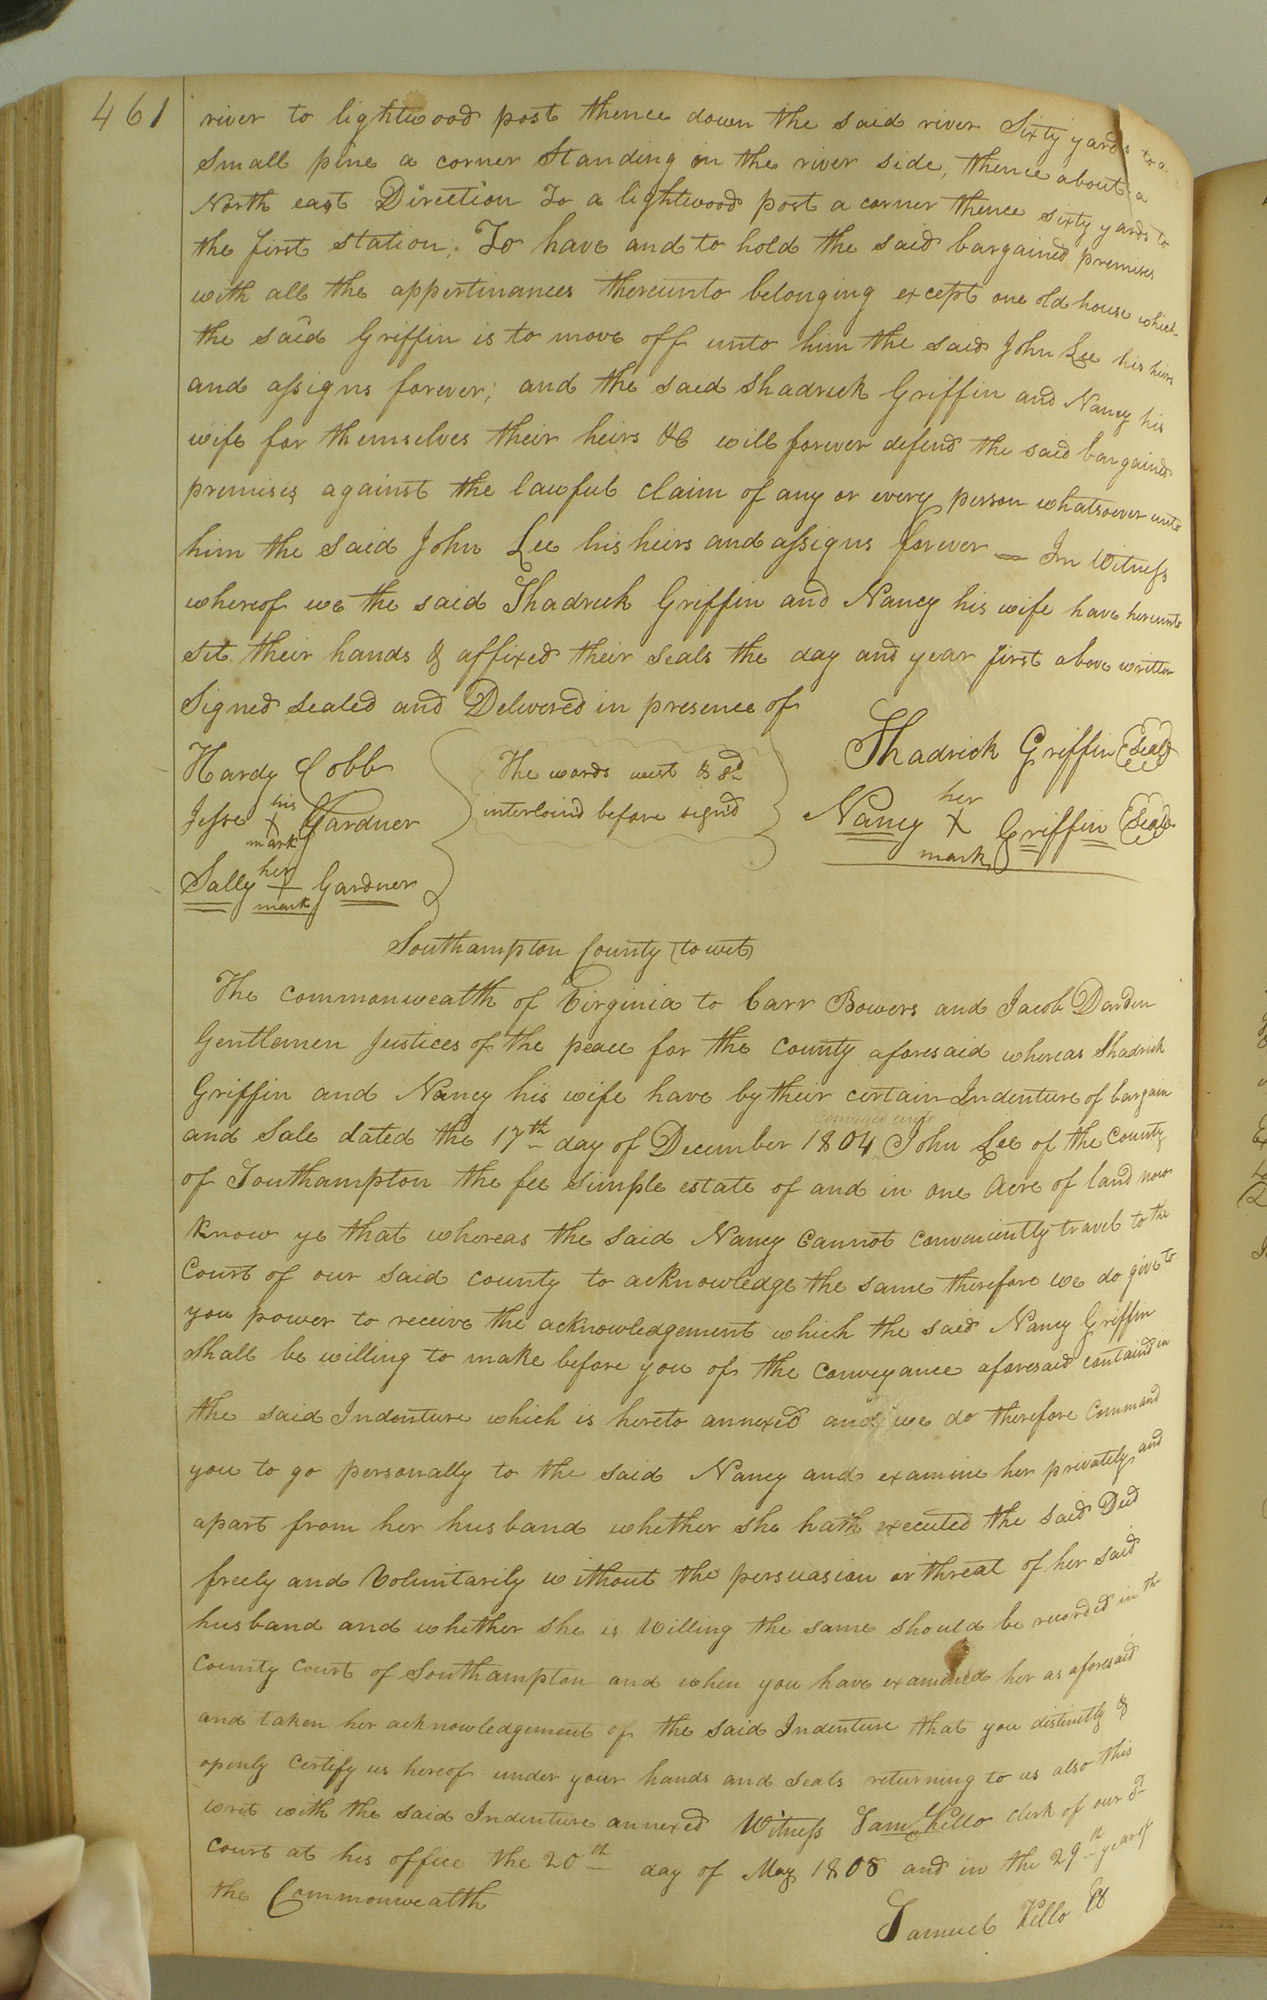 461
river to lightwood post thence down the said river Sixty yards to a
Small pine a corner Standing on the river side, thence about a
North east Direction To a lightwood post a corner thence sixty yards to
the first station. To have and to hold the said bargained premises
with all the appertinances thereunto belonging except one old house which
the said Griffin is to move off unto him the said John Lee his heirs
and assigns forever; and the said Shadrick Griffin and Nancy his
wife for themselves their heirs &c will forever defend the said bargained
premises against the lawful claim of any or every person whatsoever unto
him the said John Lee his heirs and assigns forever — In Witness
whereof we the said Shadrick Griffin and Nancy his wife have hereunto
set their hands & affixed their seals the day and year first above written
Signed sealed and Delivered in presence of
Hardy Cobb
Jesse his X mark Gardner
Sally her + mark Gardner
The words west & sd
interloind before signd
Shadrick Griffin (Seal)
Nancy her X mark Griffin (Seal)
Southampton County (to wit)
The commonwealth of Virginia to Carr Bowers and Jacob Darden
Gentlemen Justices of the peace for the County aforesaid whereas Shadrick
Griffin and Nancy his wife have by their certain Indenture of bargain
and Sale dated the 17th day of December 1804 conveied unto John Lee of the County
of Southampton the fee simple estate of and in one Acre of land now
Know ye that whereas the said Nancy Cannot conveniently travel to the
Court of our said county to acknowledge the same therefore we do give to
you power to receive the acknowledgement which the said Nancy Griffin
Shall be willing to make before you of the conveyance aforesaid containd in
the said Indenture which is hereto annexed and we do therefore Command
you to go personally to the said Nancy and examine her privately and
apart from her husband whether she hath executed the said Deed
freely and Voluntarily without the persuasion or threat of her said
husband and whether she is Willing the same should be recorded in the
County Court of Southampton and when you have examined her as aforesaid
and taken her acknowledgement of the said Indenture that you distinctly &
openly certify us hereof under your hands and seals returning to us also this
writ with the said Indenture annexed Witness Saml Kello Clerk of our sd
Court at his office the 20th day of May 1805 and in the 29th year of
the Commonwealth
Samuel Kello Cl